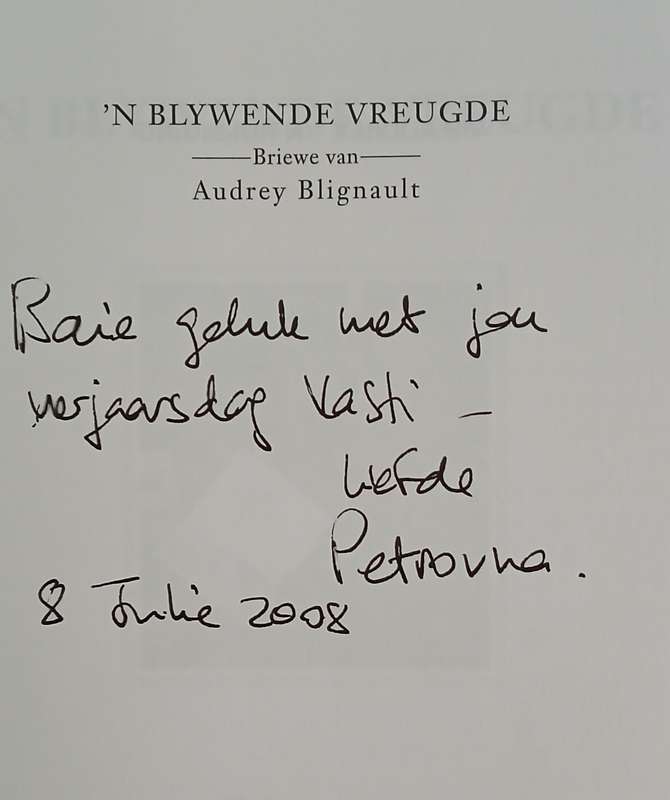 'N BLYWENDE VREUGDE
Briewe van
Audrey Blignault
Baie geluk met jou
verjaarsdag Vasti –
liefde
Petrovna.
8 Julie 2008